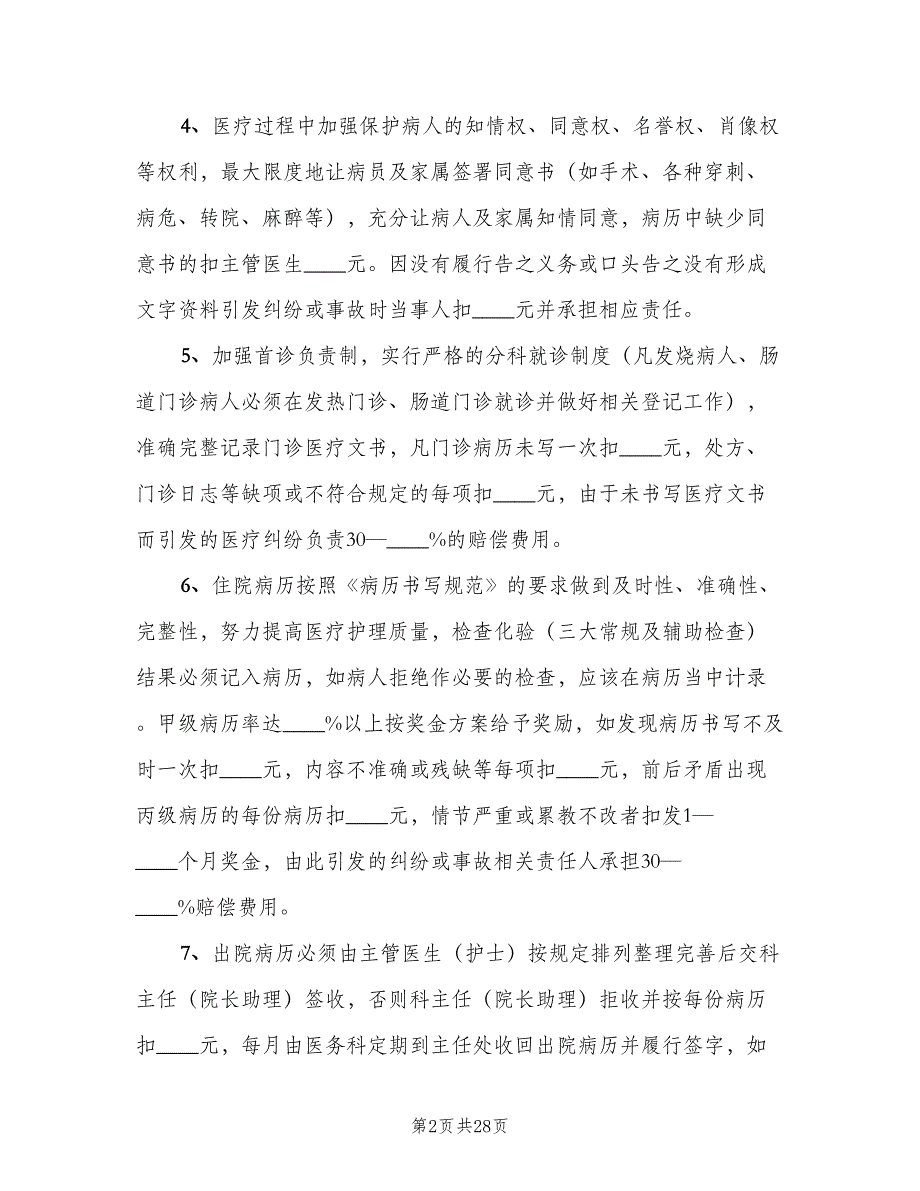 4、医疗过程中加强保护病人的知情权、同意权、名誉权、肖像权
等权利，最大限度地让病员及家属签署同意书（如手术、各种穿刺、
病危、转院、麻醉等），充分让病人及家属知情同意，病历中缺少同
意书的扣主管医生____元。因没有履行告之义务或口头告之没有形成
文字资料引发纠纷或事故时当事人扣____元并承担相应责任。
5、加强首诊负责制，实行严格的分科就诊制度（凡发烧病人、肠
道门诊病人必须在发热门诊、肠道门诊就诊并做好相关登记工作），
准确完整记录门诊医疗文书，凡门诊病历未写一次扣____元，处方、
门诊日志等缺项或不符合规定的每项扣____元，由于未书写医疗文书
而引发的医疗纠纷负责30—____%的赔偿费用。
6、住院病历按照《病历书写规范》的要求做到及时性、准确性、
完整性，努力提高医疗护理质量，检查化验（三大常规及辅助检查）
结果必须记入病历，如病人拒绝作必要的检查，应该在病历当中计录
。甲级病历率达____%以上按奖金方案给予奖励，如发现病历书写不及
时一次扣____元，内容不准确或残缺等每项扣____元，前后矛盾出现
丙级病历的每份病历扣____元，情节严重或累教不改者扣发1—
____个月奖金，由此引发的纠纷或事故相关责任人承担30—
____%赔偿费用。
7、出院病历必须由主管医生（护士）按规定排列整理完善后交科
主任（院长助理）签收，否则科主任（院长助理）拒收并按每份病历
扣____元，每月由医务科定期到主任处收回出院病历并履行签字，如
第2页共28页